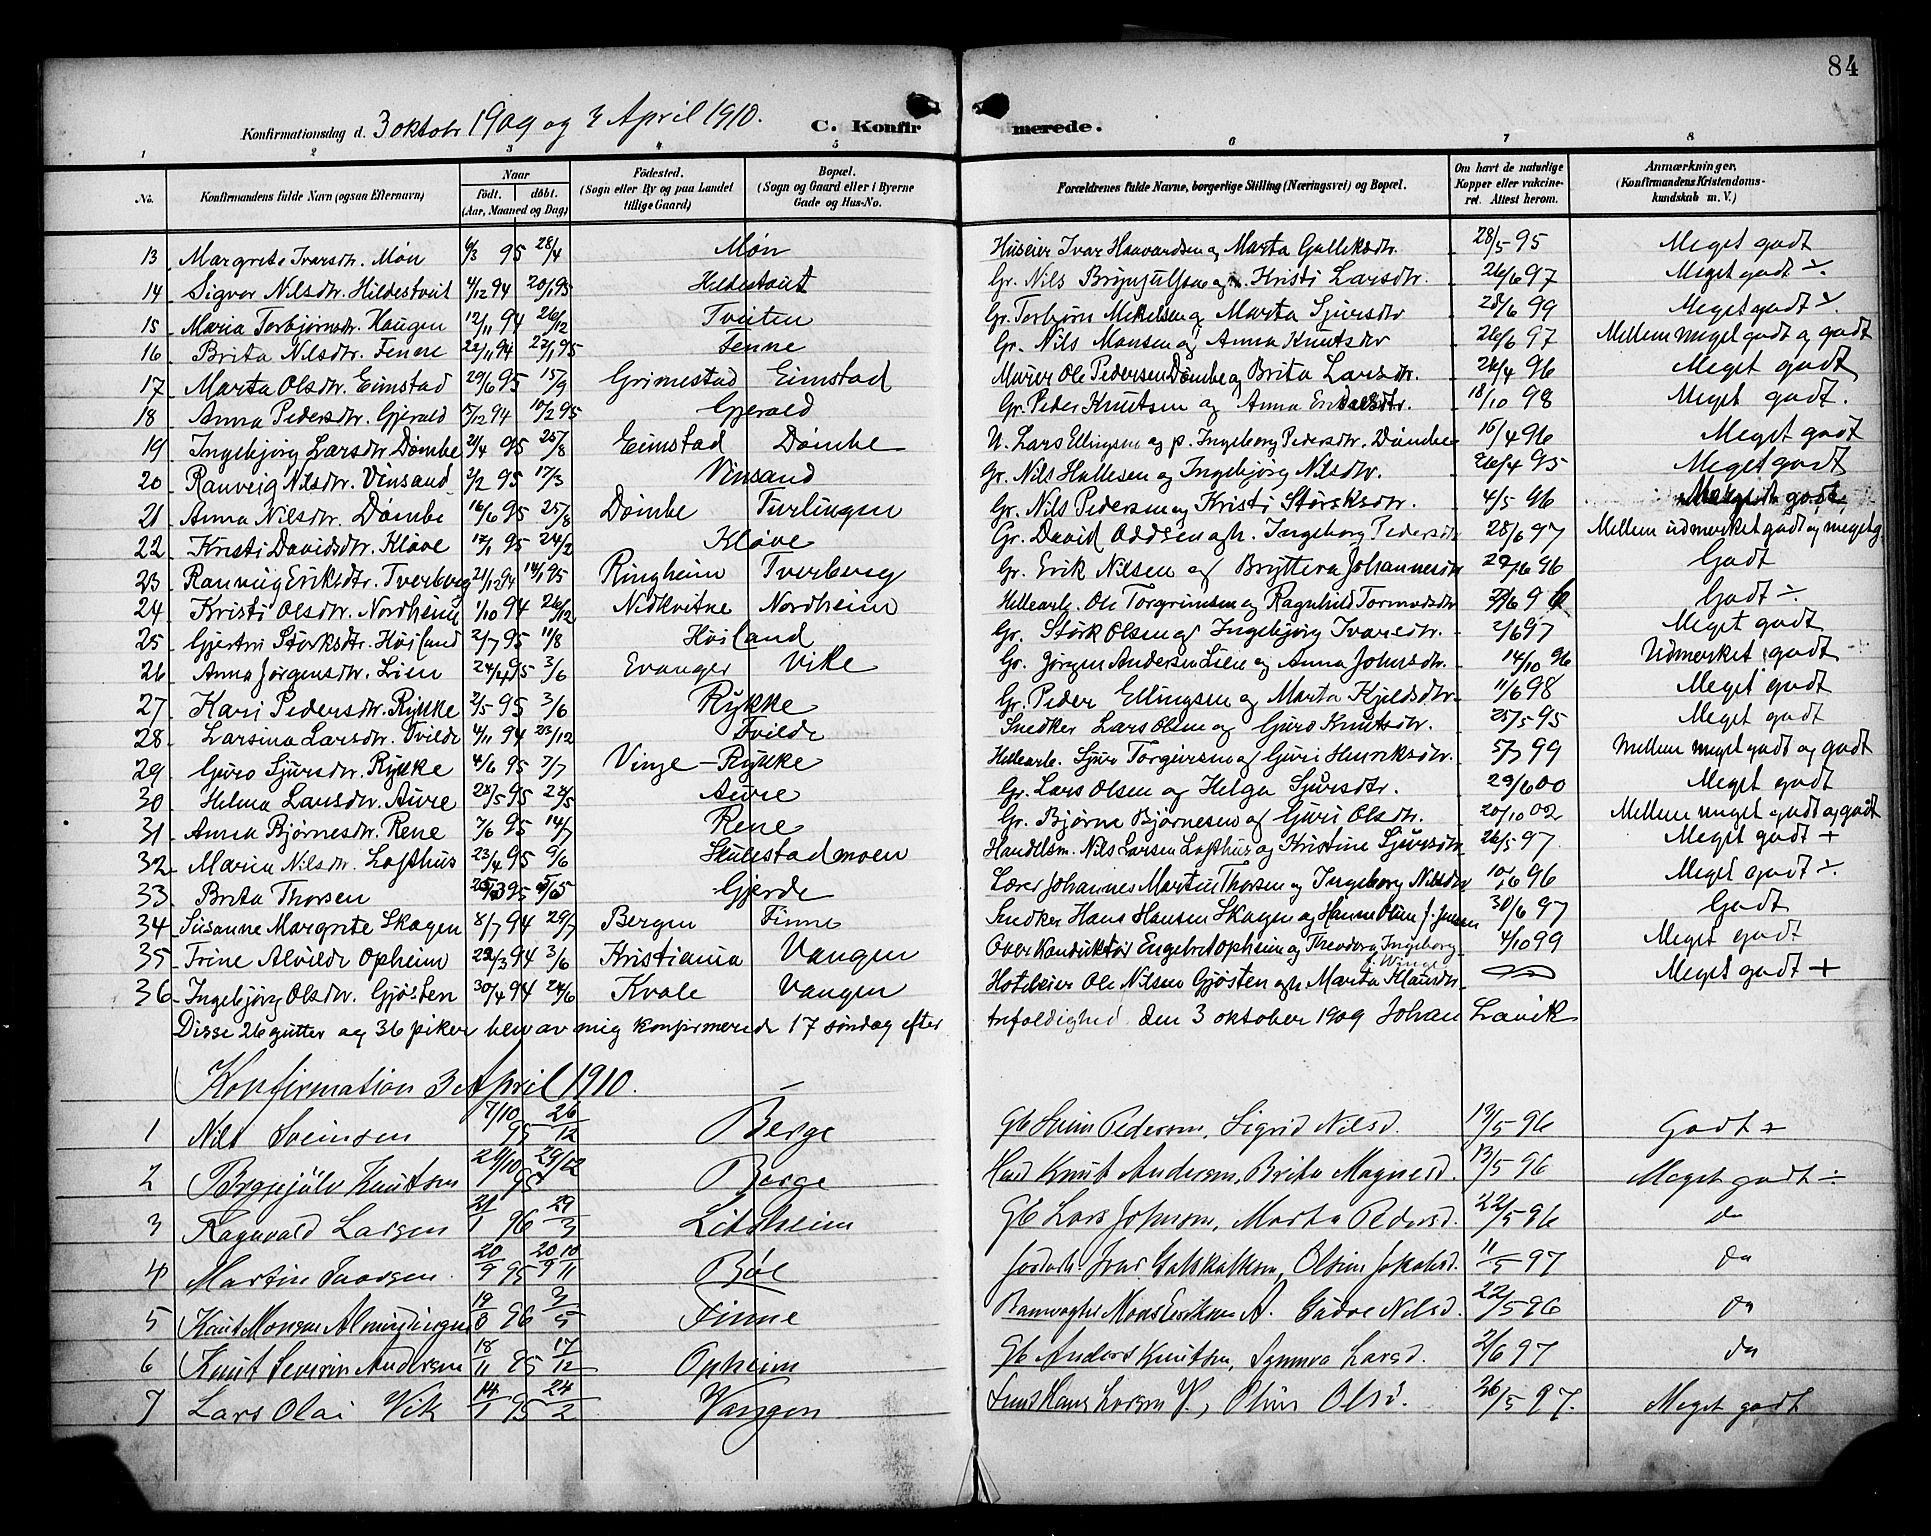 84
Konfirmationsdag d. 3 oktobr 1909 og 3 April 1910. C. Konfirmerede.
1 2 3 4 5 6 7 8
No. Konfirmandens fulde Navn (ogsaa Efternavn) Naar født. døbt. (Aar, Maaned og Dag) Fødested. (Sogn eller By og paa Landet tillige Gaard) Bopæl. (Sogn og Gaard eller i Byerne Gade og Hus-No. Forældrenes fulde Navne, borgerlige Stilling (Næringsvei) og Bopæl. Om havt de naturlige Kopper eller vakcineret. Attest herom. Anmærkninger, (Konfirmandens Kristendomskundskab m. V.)
13 Margrete Ivarsdtr. Møn 6/3 95 28/4 Møn Huseier Ivar Haavardsen og Marta Gulleksdtr. 28/5 95 Meget godt
14 Sigvor Nilsdtr. Hildestveit 4/12 94 20/1 95 Hildestveit Gr. Nils Brynjulfsen og Kristi Larsdtr. 26/6 97 Meget godt ÷.
15 Maria Torbjørnsdr. Haugen 12/11 94 26/12 Tveiten Gr. Torbjørn Mikkelsen og Marta Sjursdtr 28/6 99 Meget godt ÷
16 Brita Nilsdtr. Fenne 22/11 94 27/1 95 Fenne Gr. Nils Monsen og Anna Knutsdtr 26/6 97 Mellem meget godt og godt
17 Marta Olsdtr. Eimstad 29/6 95 15/9 Grimestad Eimstad Murer Ole Pedersen Dømbe og Brita Larsdtr. 24/4 96 Meget godt
18 Anna Pedersdtr. Gjerald 17/12 94 10/2 95 Gjerald Gr. Peder Knutsen og Anna Eriksdtr. 18/10 98 Meget godt.
19 Ingebjørg Larsdtr. Dømbe 21/4 95 25/8 Eimstad Dømbe U. Lars Ellingsen og p. Ingeborg Pedersdtr. Dømbe 16/4 96 Meget godt
20 Ranveig Nilsdtr. Vinsand 2/2 95 17/3 Vinsand Gr. Nils Hallesen og Ingebjørg Nilsdtr. 26/4 95 Meget godt
21 Anna Nilsdtr. Dømbe 16/6 95 25/8 Dømbe Turlingen Gr. Nils Pedersen og Kristi Størksdtr. 4/5 96 Meget godt
22 Kristi Davidsdtr. Kløve 17/1 95 24/2 Kløve Gr. David Oddsen og h. Ingeborg Pedersdtr 28/6 97 Mellem udmerket godt og meget g.
23 Ranveig Eriksdtr. Tverberg 21/12 94 14/1 95 Ringheim Tverberg Gr. Erik Nilsen og Bryttera Johannesdtr 29/6 96 Godt
24 Kristi Olsdtr. Nordheim 1/10 94 26/12 Nidkvitne Nordheim Hellearb. Ole Torgrimsen og Ragnhild Tormodsdtr Godt ÷
25 Gjertrui Størksdtr. Høiland 2/7 95 11/8 Høiland Gr. Størk Olsen og Ingebjørg Ivarsdtr. 2/6 97 Meget godt
26 Anna Jørgensdtr. Lien 24/4 95 3/6 Evanger Vike Gr. Jørgen Andersen Lien og Anna Johnsdtr. 14/10 96 Udmerket godt
27 Kari Pedersdtr. Rykke 2/5 95 3/6 Rykke Gr. Peder Ellingsen og Marta Kjeldsdtr. 11/6 98 Meget godt
28 Larsina Larsdtr. Tvilde 4/11 94 23/12 Tvilde Snedker Lars Olsen og Guro Knutsdtr. 25/5 95 Meget godt
29 Guro Sjursdtr. Rykke 4/6 95 7/7 Vinje - Rykke Hellearb. Sjur Torgeirsen og Guri Henriksdtr. 5/7 99 Mellem meget godt og godt
30 Helena Larsdtr. Aure 28/5 95 Aure Gr. Lars Olsen og Helga Sjursdtr. 29/6 00 Meget godt
31 Anna Bjørnesdtr. Rene 7/6 95 14/7 Rene Gr. Bjørne Bjørnesen og Guri Olsdtr. 20/10 02 Mellem meget godt og godt
32 Maria Nilsdtr. Lofthus 23/4 95 9/6 Skulestadmoen Handelsm. Nils Larsen Lofthus og Kristine Sjursdtr 26/5 97. Meget godt +
33 Brita Thorsen Gjerde Lærer Johannes Martin Thorsen og Ingeborg Nilsdtr 10/6 96 Meget godt ÷.
34 Susanne Margrete Skagen 8/7 94 29/7 Bergen Finne Snedker Hans Hansen Skagen og Hanne Oline J. Jensen 30/6 97 Godt
35 Trine Alvilde Opheim 22/3 94 3/6 Kristiania Vangen Over Konduktør Engebret Opheim og Theodora Ingeborg f. Winge 4/10 99 Meget godt
36 Ingebjørg Olsdtr. Gjøsten 30/4 94 24/6 Kvale Vangen Hoteleier Ole Nilsen Gjøsten og h. Marta Klausdtr Meget godt +
Disse 26 gutter og 36 piker blev av mig konfirmerede 17 søndag efter trefoldighed den 3 oktober 1909 Johan Lavik
Konfirmation 3 April 1910.
1 Nils Sveinsen 7/10 95 26/12 Berge Gb Svein Pedersen, Sigrid Nilsd. 13/5 96 Godt +
2 Brynjulv Knutsen 24/10 95 29/12 Berge Husm Knut Andersen, Brita Magnesd. 13/5 96 Meget godt ÷
3 Ragnvald Larsen 21/1 96 29/3 Lidsheim Gb Lars Johnsen, Marta Pedersd. 22/5 96 do
4 Martin Ivarsen 20/9 95 10/11 Bøe Jordarb. Ivar Gotskalksen, Olsine Jakobsd. 11/5 97 do
5 Knut Monsen Almindingen 96 3/5 Finne Banevogter Mons Eriksen A. Gudve Nilsd. 22/5 96 do
6 Knut Severin Andersen 18/11 95 17/12 Opheim Gb Anders Knutsen, Synneva Larsd. 2/6 97 do
7 Lars Olai Vik 14/1 95 24/2 Vangen Hans Larsen V., Oline Olsd. 26/5 97. Meget godt